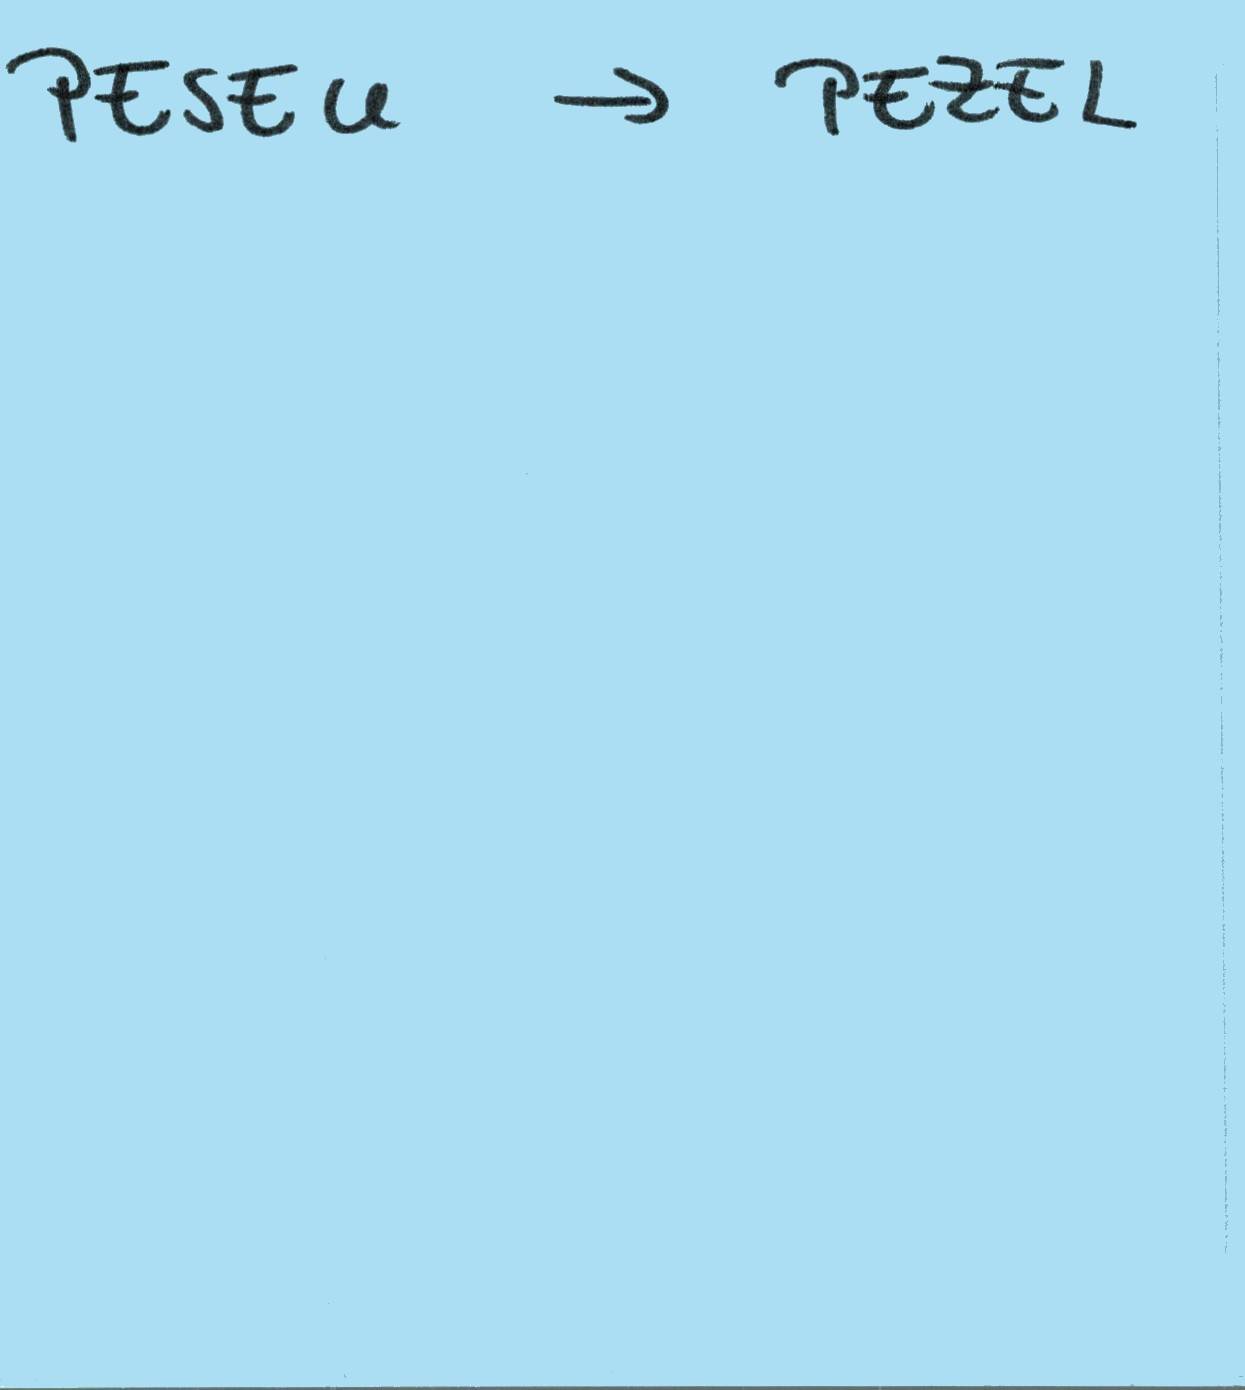 PESEU → PEZEL